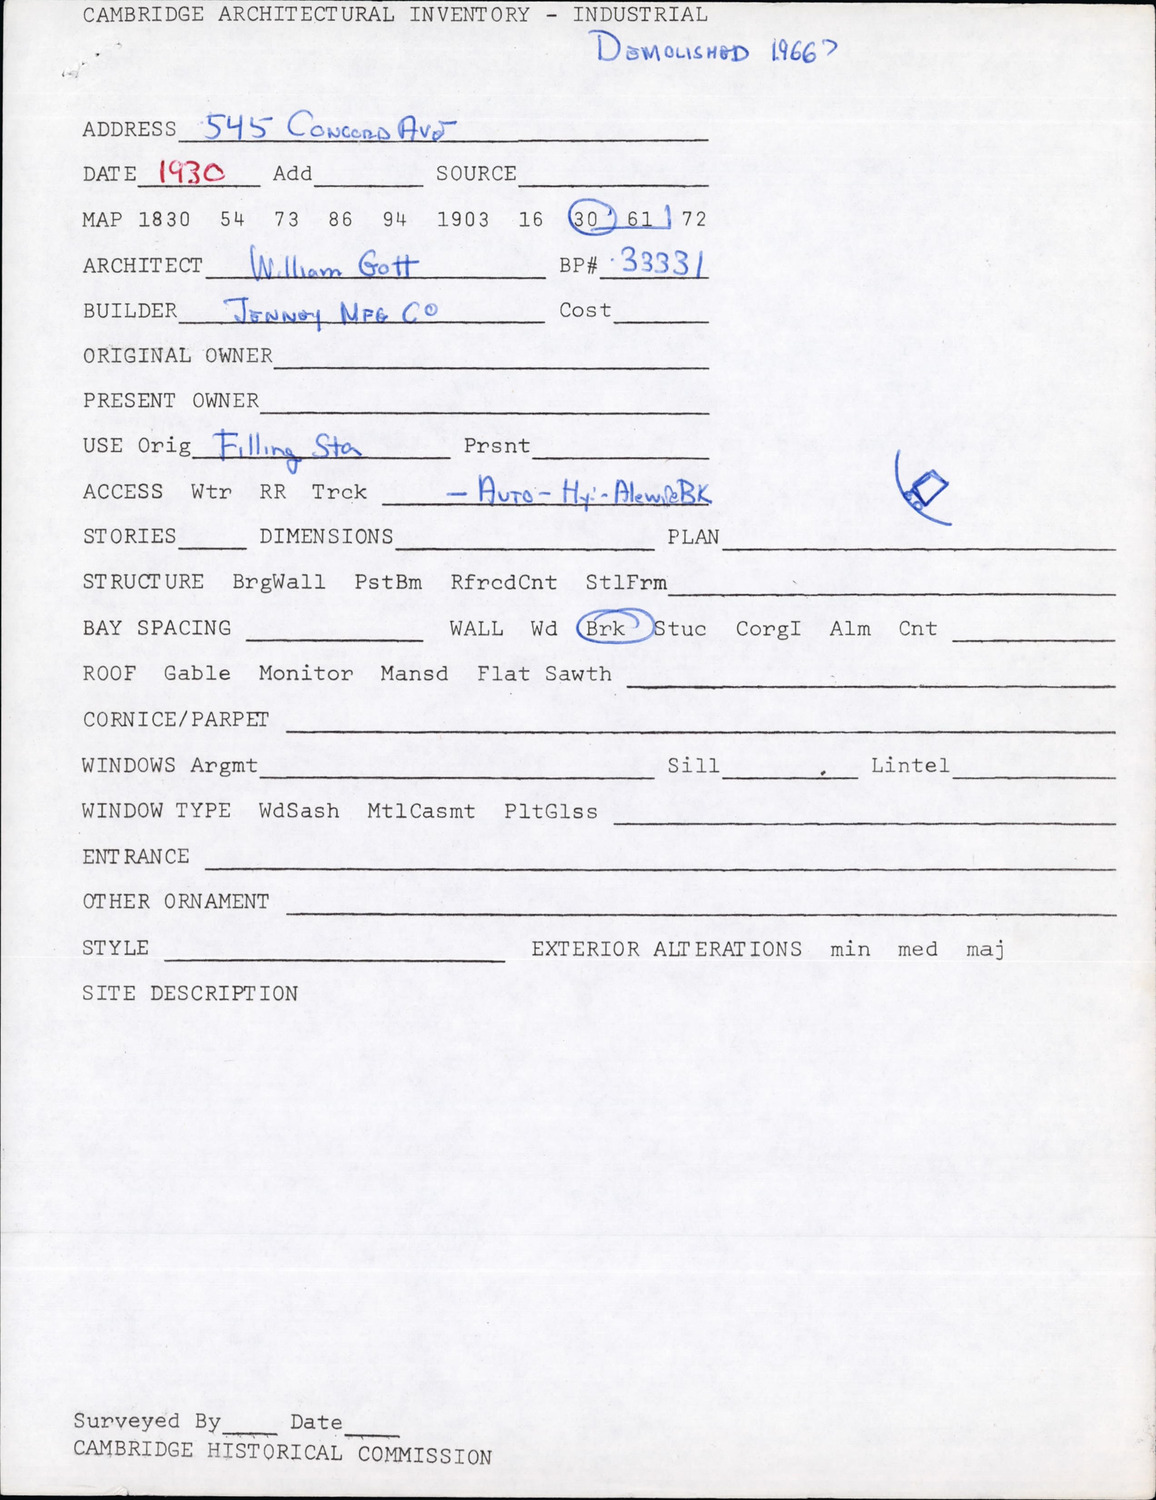 CAMBRIDGE ARCHITECTURAL INVENTORY - INDUSTRIAL
DEMOLISHED 1966?
ADDRESS 545 CONCORD AVE
DATE 1930 Add SOURCE
MAP 1830 54 73 86 94 1903 16 30 61 72
ARCHITECT William Gott BP# 33331
BUILDER JENNEY MFG CO Cost
ORIGINAL OWNER
PRESENT OWNER
USE Orig Filling Sta Prsnt
ACCESS Wtr RR Trck - AUTO - Hy - Alewife BK
STORIES DIMENSIONS PLAN
STRUCTURE BrgWall PstBm RfrcdCnt StlFrm
BAY SPACING WALL Wd Brk Stuc CorgI Alm Cnt
ROOF Gable Monitor Mansd Flat Sawth
CORNICE/PARPET
WINDOWS Argmt Sill Lintel
WINDOW TYPE WdSash MtlCasmt PltGlss
ENTRANCE
OTHER ORNAMENT
STYLE EXTERIOR ALTERATIONS min med maj
SITE DESCRIPTION
Surveyed By Date
CAMBRIDGE HISTORICAL COMMISSION